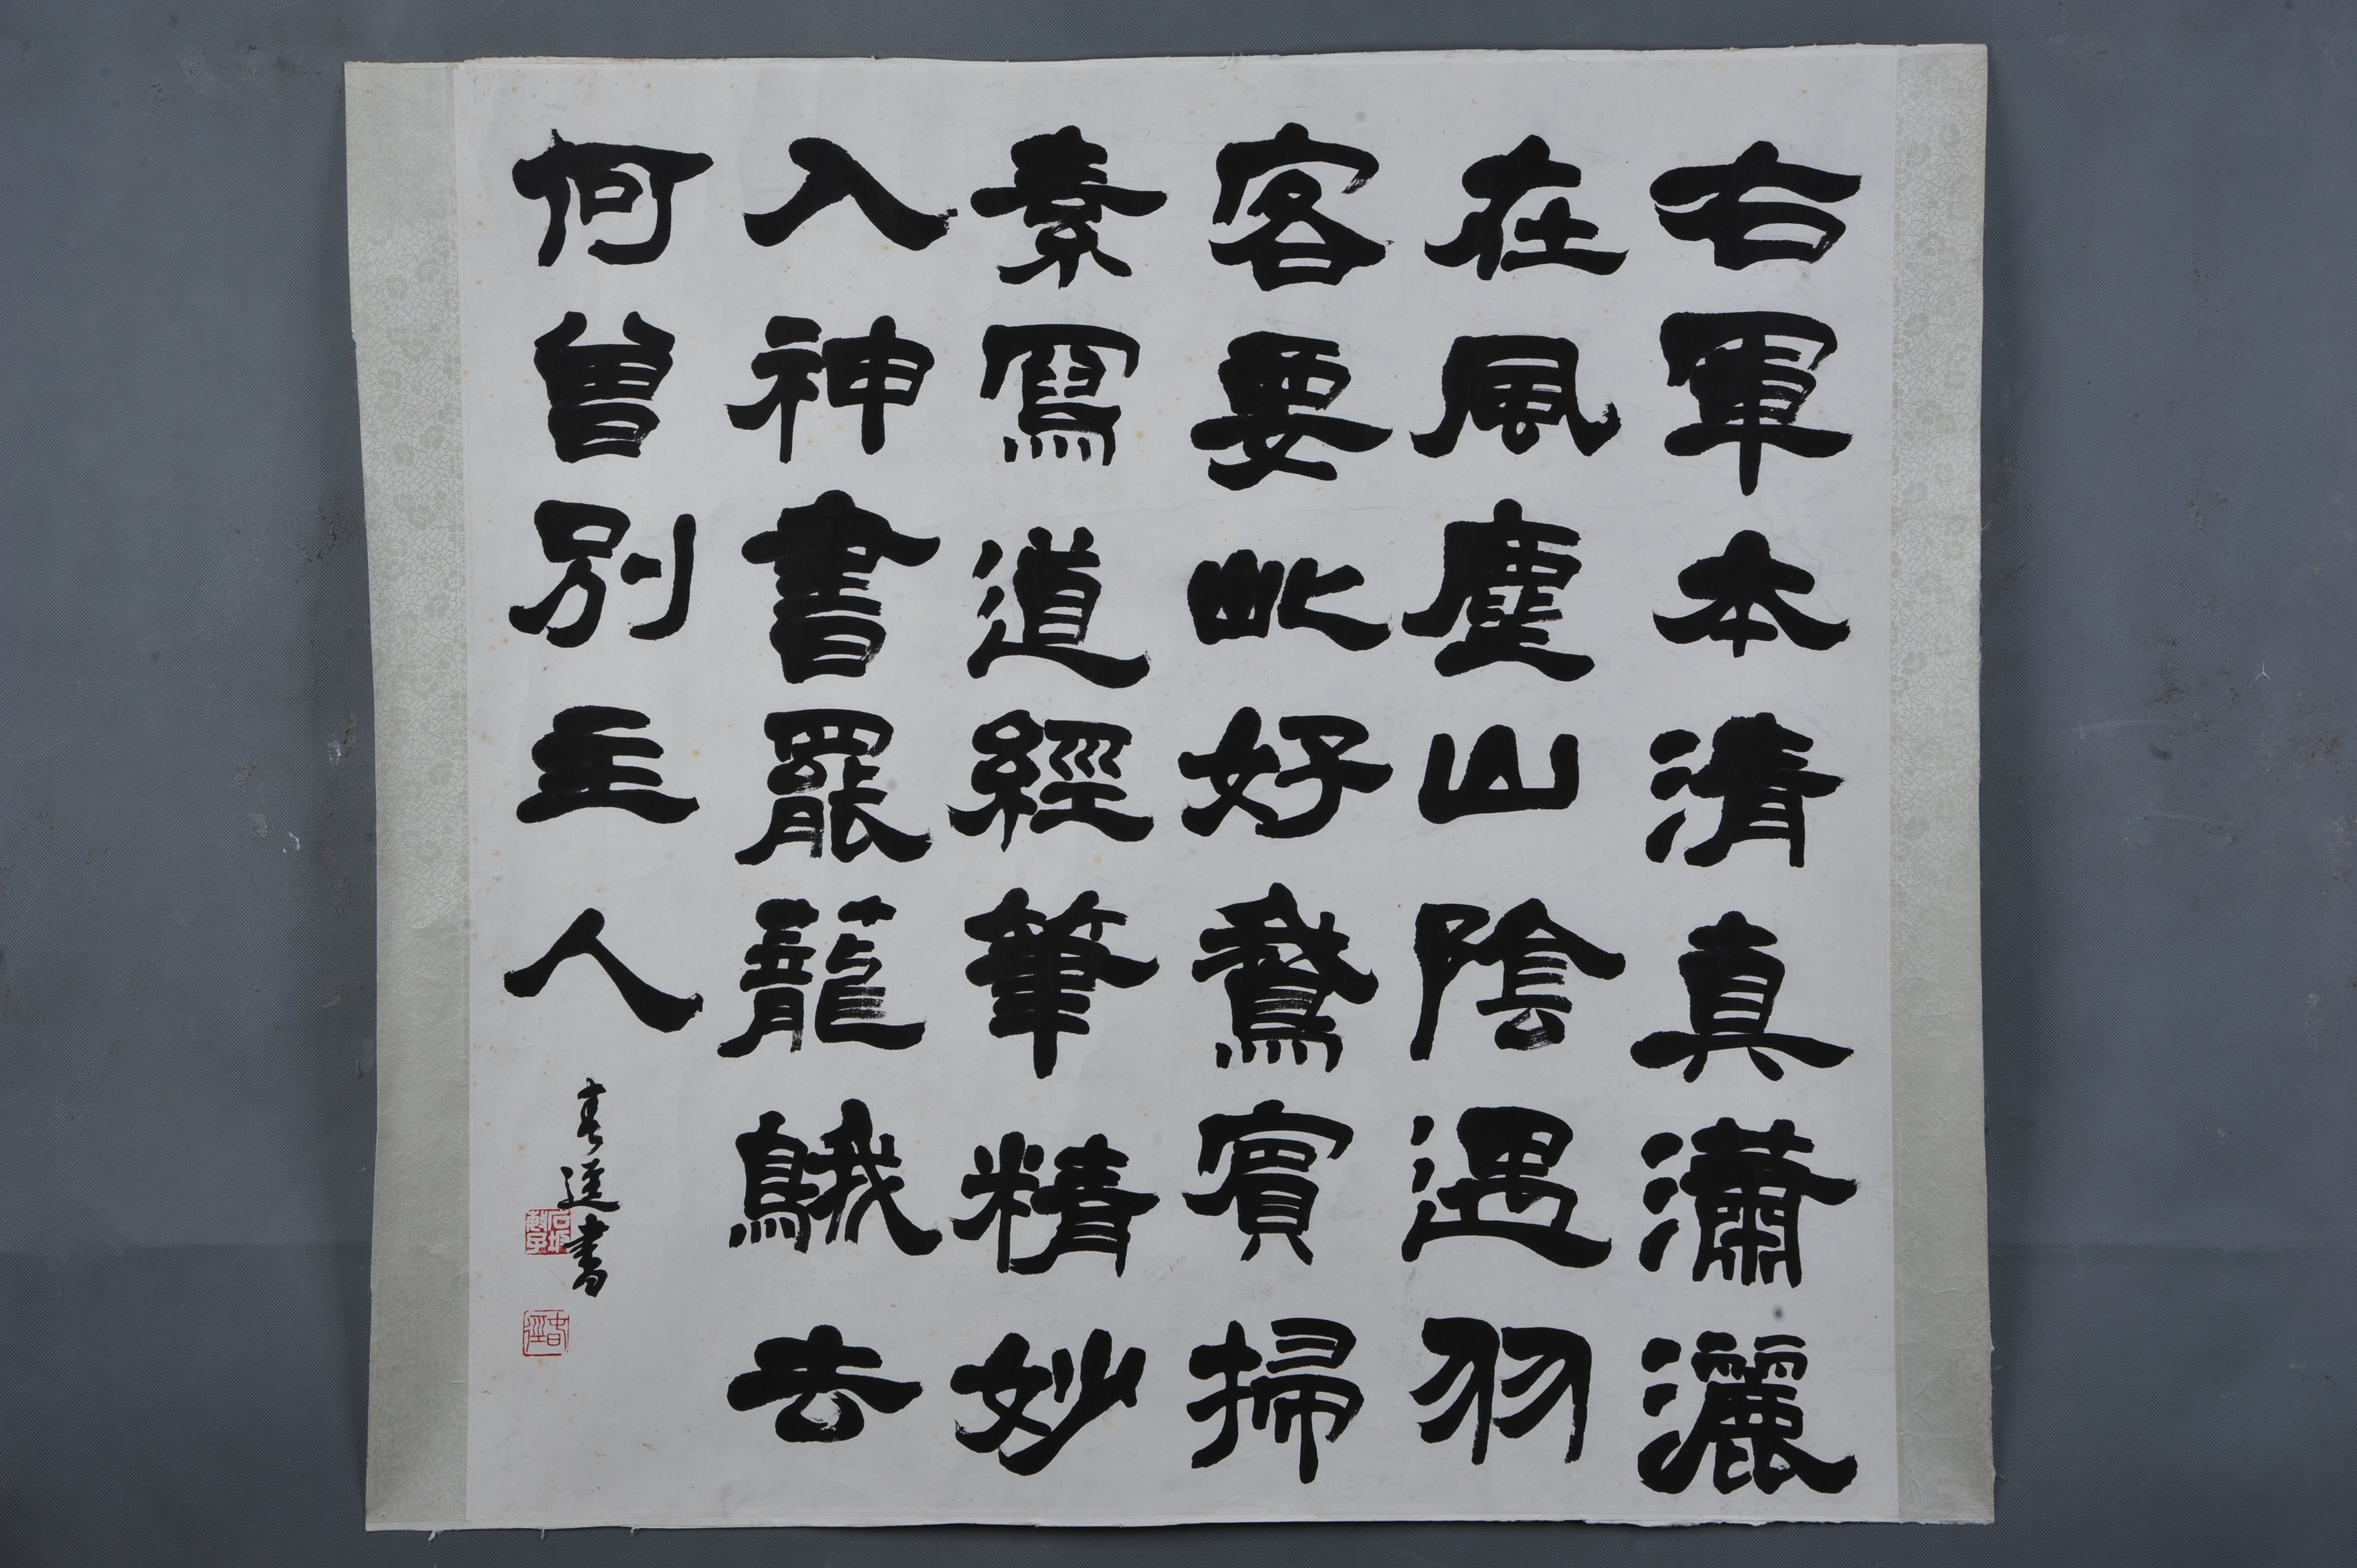 右軍本清真瀟灑
在風塵山陰遇羽
客要此好鵞賓掃
素寫道經筆精妙
入神書罷籠鵝去
何曾別主人
春逕書